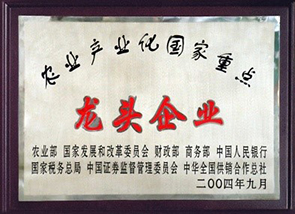 农业产业化国家重点
龙头企业
农业部 国家发展和改革委员会 财政部 商务部 中国人民银行
国家税务总局 中国证券监督管理委员会 中华全国供销合作总社
二〇〇四年九月